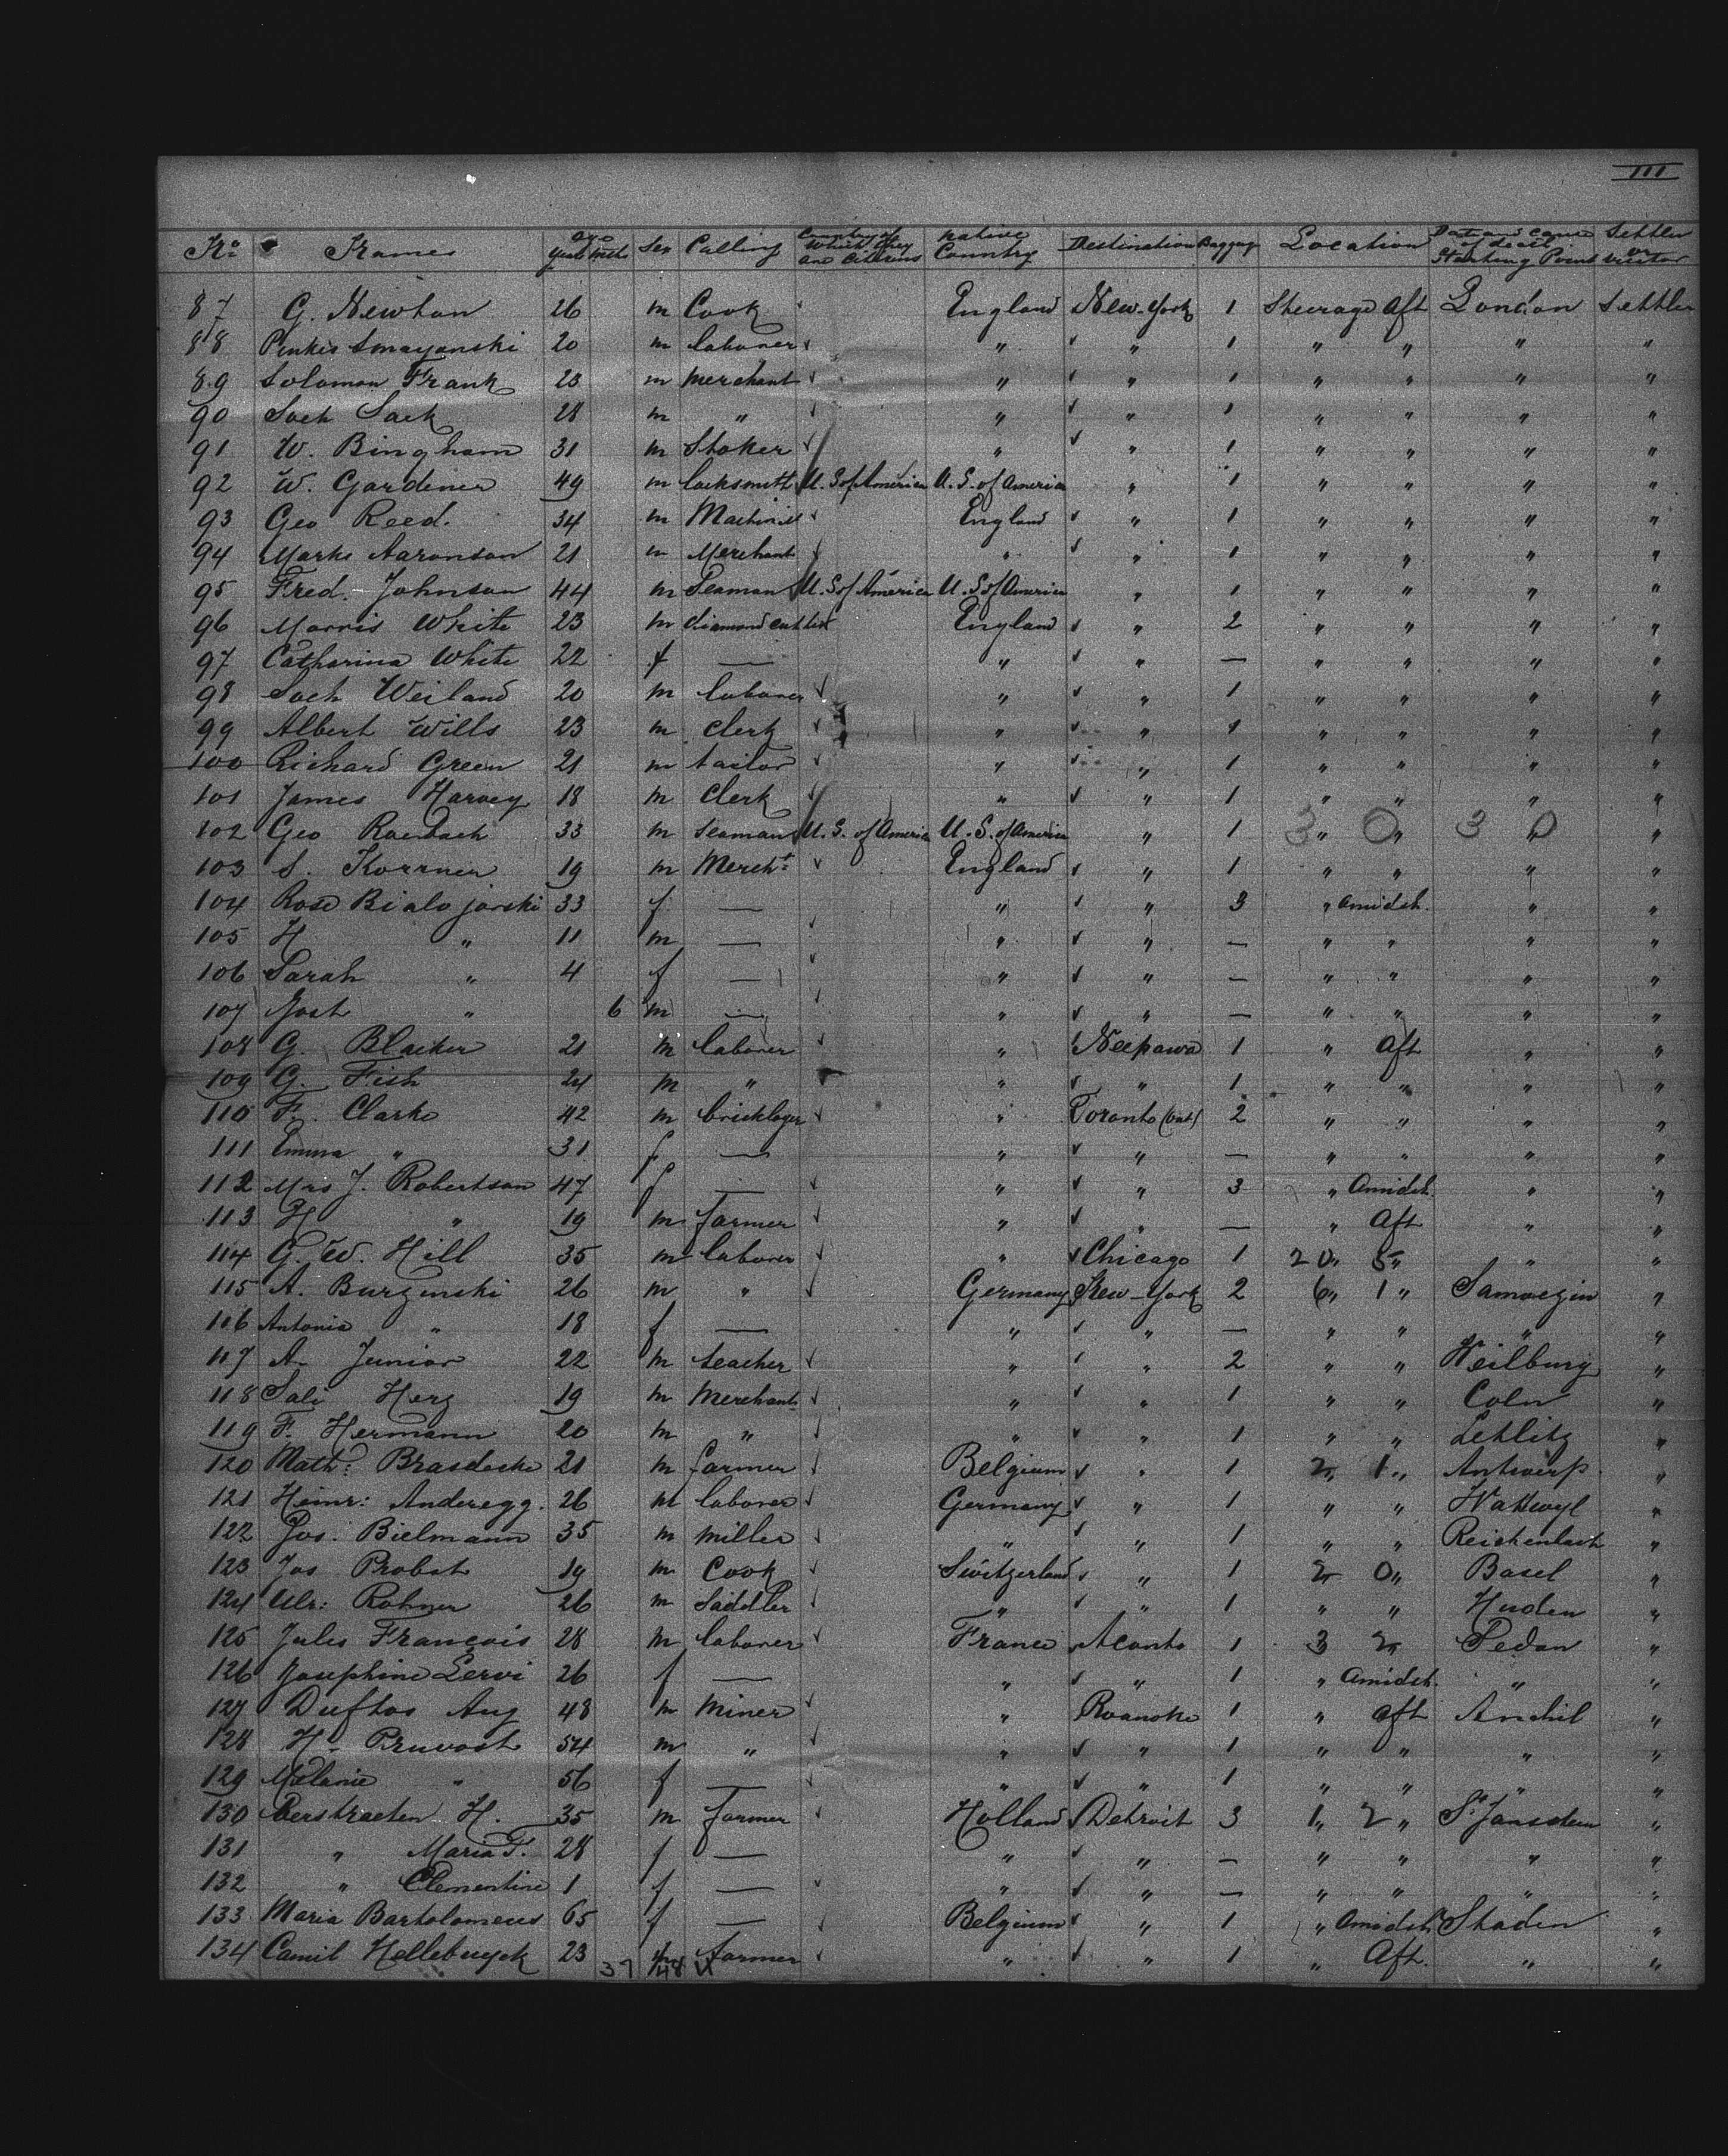 III
No Names age years mths Sex Calling Country of which they are Citizens native Country Destination Baggage Location Date and cause of death Starting Point Settler or visitor
87 G. Newton 26 m Cook England New-York 1 Steerage Aft London Settler
88 Pinkis Smayanski 20 m laborer " " 1 " " " "
89 Solomon Frank 23 m merchant " " 1 " " " "
90 Soch Sack 28 m " " " 1 " " " "
91 W. Bingham 31 m Stoker " " 1 " " " "
92 W. Gardiner 49 m locksmith U. S. of America U. S. of America " 1 " " " "
93 Geo Reed. 34 m Machinist England " 1 " " " "
94 Marks Aaronson 21 m Merchant " " 1 " " " "
95 Fred. Johnson 44 m Seaman U. S. of America U. S. of America " 1 " " " "
96 Morris White 23 m diamond cutter England " 2 " " " "
97 Catharina White 22 f — " " — " " " "
98 Soch Weiland 20 m laborer " " 1 " " " "
99 Albert Wills 23 m clerk " " 1 " " " "
100 Richard Green 21 m tailor " " 1 " " " "
101 James Harvey 18 m Clerk " " 1 " " " "
102 Geo 33 m seaman U. S. of America U. S. of America " 1 " " " " 3 0 3 0
103 S. Korrner 19 m Mercht England " 1 " " " "
104 Rose Bialo jarski 33 f — " " 3 " Amidsh. " "
105 H " 11 m — " " — " " " "
106 Sarah " 4 f — " " — " " " "
107 " 6 m — " " — " " " "
108 G. Blacker 21 m laborer " Neepawa 1 " Aft " "
109 G. Fish 24 m " " " 1 " " " "
110 F. Clarke 42 m bricklayer " Toronto (Ont) 2 " " " "
111 Emma " 31 f — " " — " " " "
112 Mrs J. Robertson 47 f — " " 3 " Amidsh. " "
113 H " 19 m farmer " " — " Aft " "
114 G. W. Hill 35 m laborer " Chicago 1 20 " 5 " " "
115 A. Burzinski 26 m " Germany New-York 2 6 " 1 " Samoczin "
116 Antonia " 18 f — " " — " " " "
117 A. Junior 22 m teacher " " 2 " " Weilburg "
118 Sali Herz 19 m Merchant " " 1 " " Coln "
119 F. Hermann 20 m " " " 1 " " "
120 Math: Brasdocke 21 m farmer Belgium " 1 2 " 1 " Antwerp. "
121 Heinr: Anderegg. 26 m laborer Germany " 1 " " Wattwyl "
122 Jos. Bielmann 35 m miller " " 1 " " Reichenbach "
123 Jos Probst 19 m Cook Switzerland " 1 2 " 0 " Basel "
124 Ulr: Rohner 26 m Saddler " " 1 " " "
125 Jules Francois 28 m laborer France 1 3 " 2 " Sedan "
126 Josephine Lervi 26 f — " " 1 " Amidsh. " "
127 Duflos Aug 48 m Miner " Roanoke 1 " aft "
128 H. Pruvost 54 m " " " 1 " " " "
129 Melanie " 56 f — " " 1 " " " "
130 Verstraeten H. 35 m farmer Holland Detroit 3 1 " 2 " St. Janssteen "
131 " Maria T. 28 f — " " — " " " "
132 " Clementine 1 f — " " — " " " "
133 Maria Bartolomeus 65 f — Belgium " 1 " Amidsh Staden "
134 Camil Hellebuyck 23 m farmer " " 1 " Aft. " "
37 48